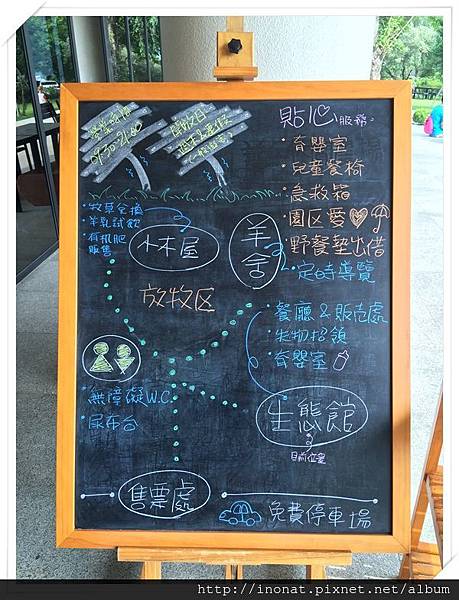 營業時間
09:30-21:00
開放日
貼心服務。
・育嬰室
・兒童餐椅
・急救箱
・園区愛
・野餐墊出借
・牧草兌換
・羊乳試飲
・有机肥
販售
小木屋
羊舍
・定時導覽
放牧区
・餐廳 & 販売處
・失物招領
・育嬰室
・無障礙W.C.
・尿布台
生態館
目前位置
售票處
免費停車場
http://inonat.pixnet.net/album